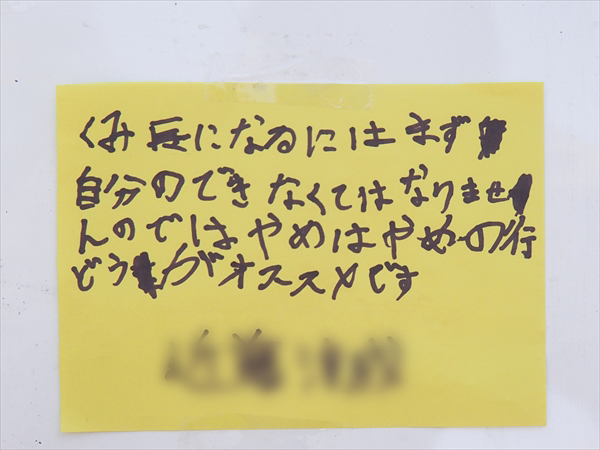 くみ長になるにはまず
自分のできなくてはなりませ
んのではやめはやめの行
どうがオススメです